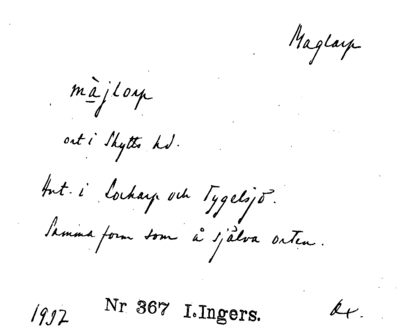 Maglarp
màjlorp
ort i Skytts hd.
Ant. i Lockarp och Tygelsjö.
Samma form som å själva orten.
1932 Nr 367 I.Ingers. Ex.